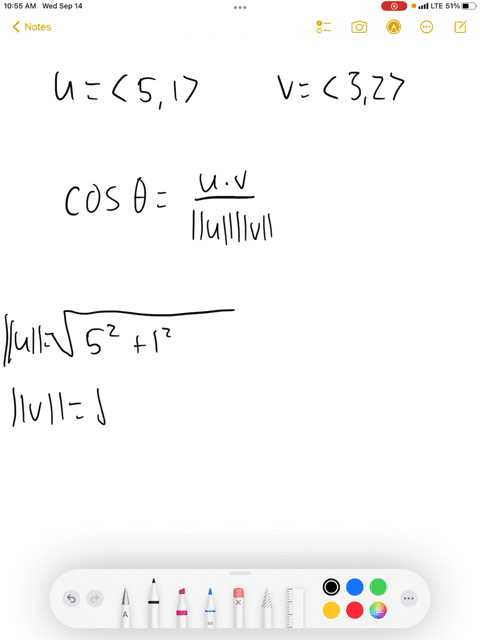 10:55 AM Wed Sep 14 LTE 51%
Notes
u = <5,1> v = <3,2>
cos θ = u·v / ||u||||v||
||u||=√5² + 1²
||v|| = √
A